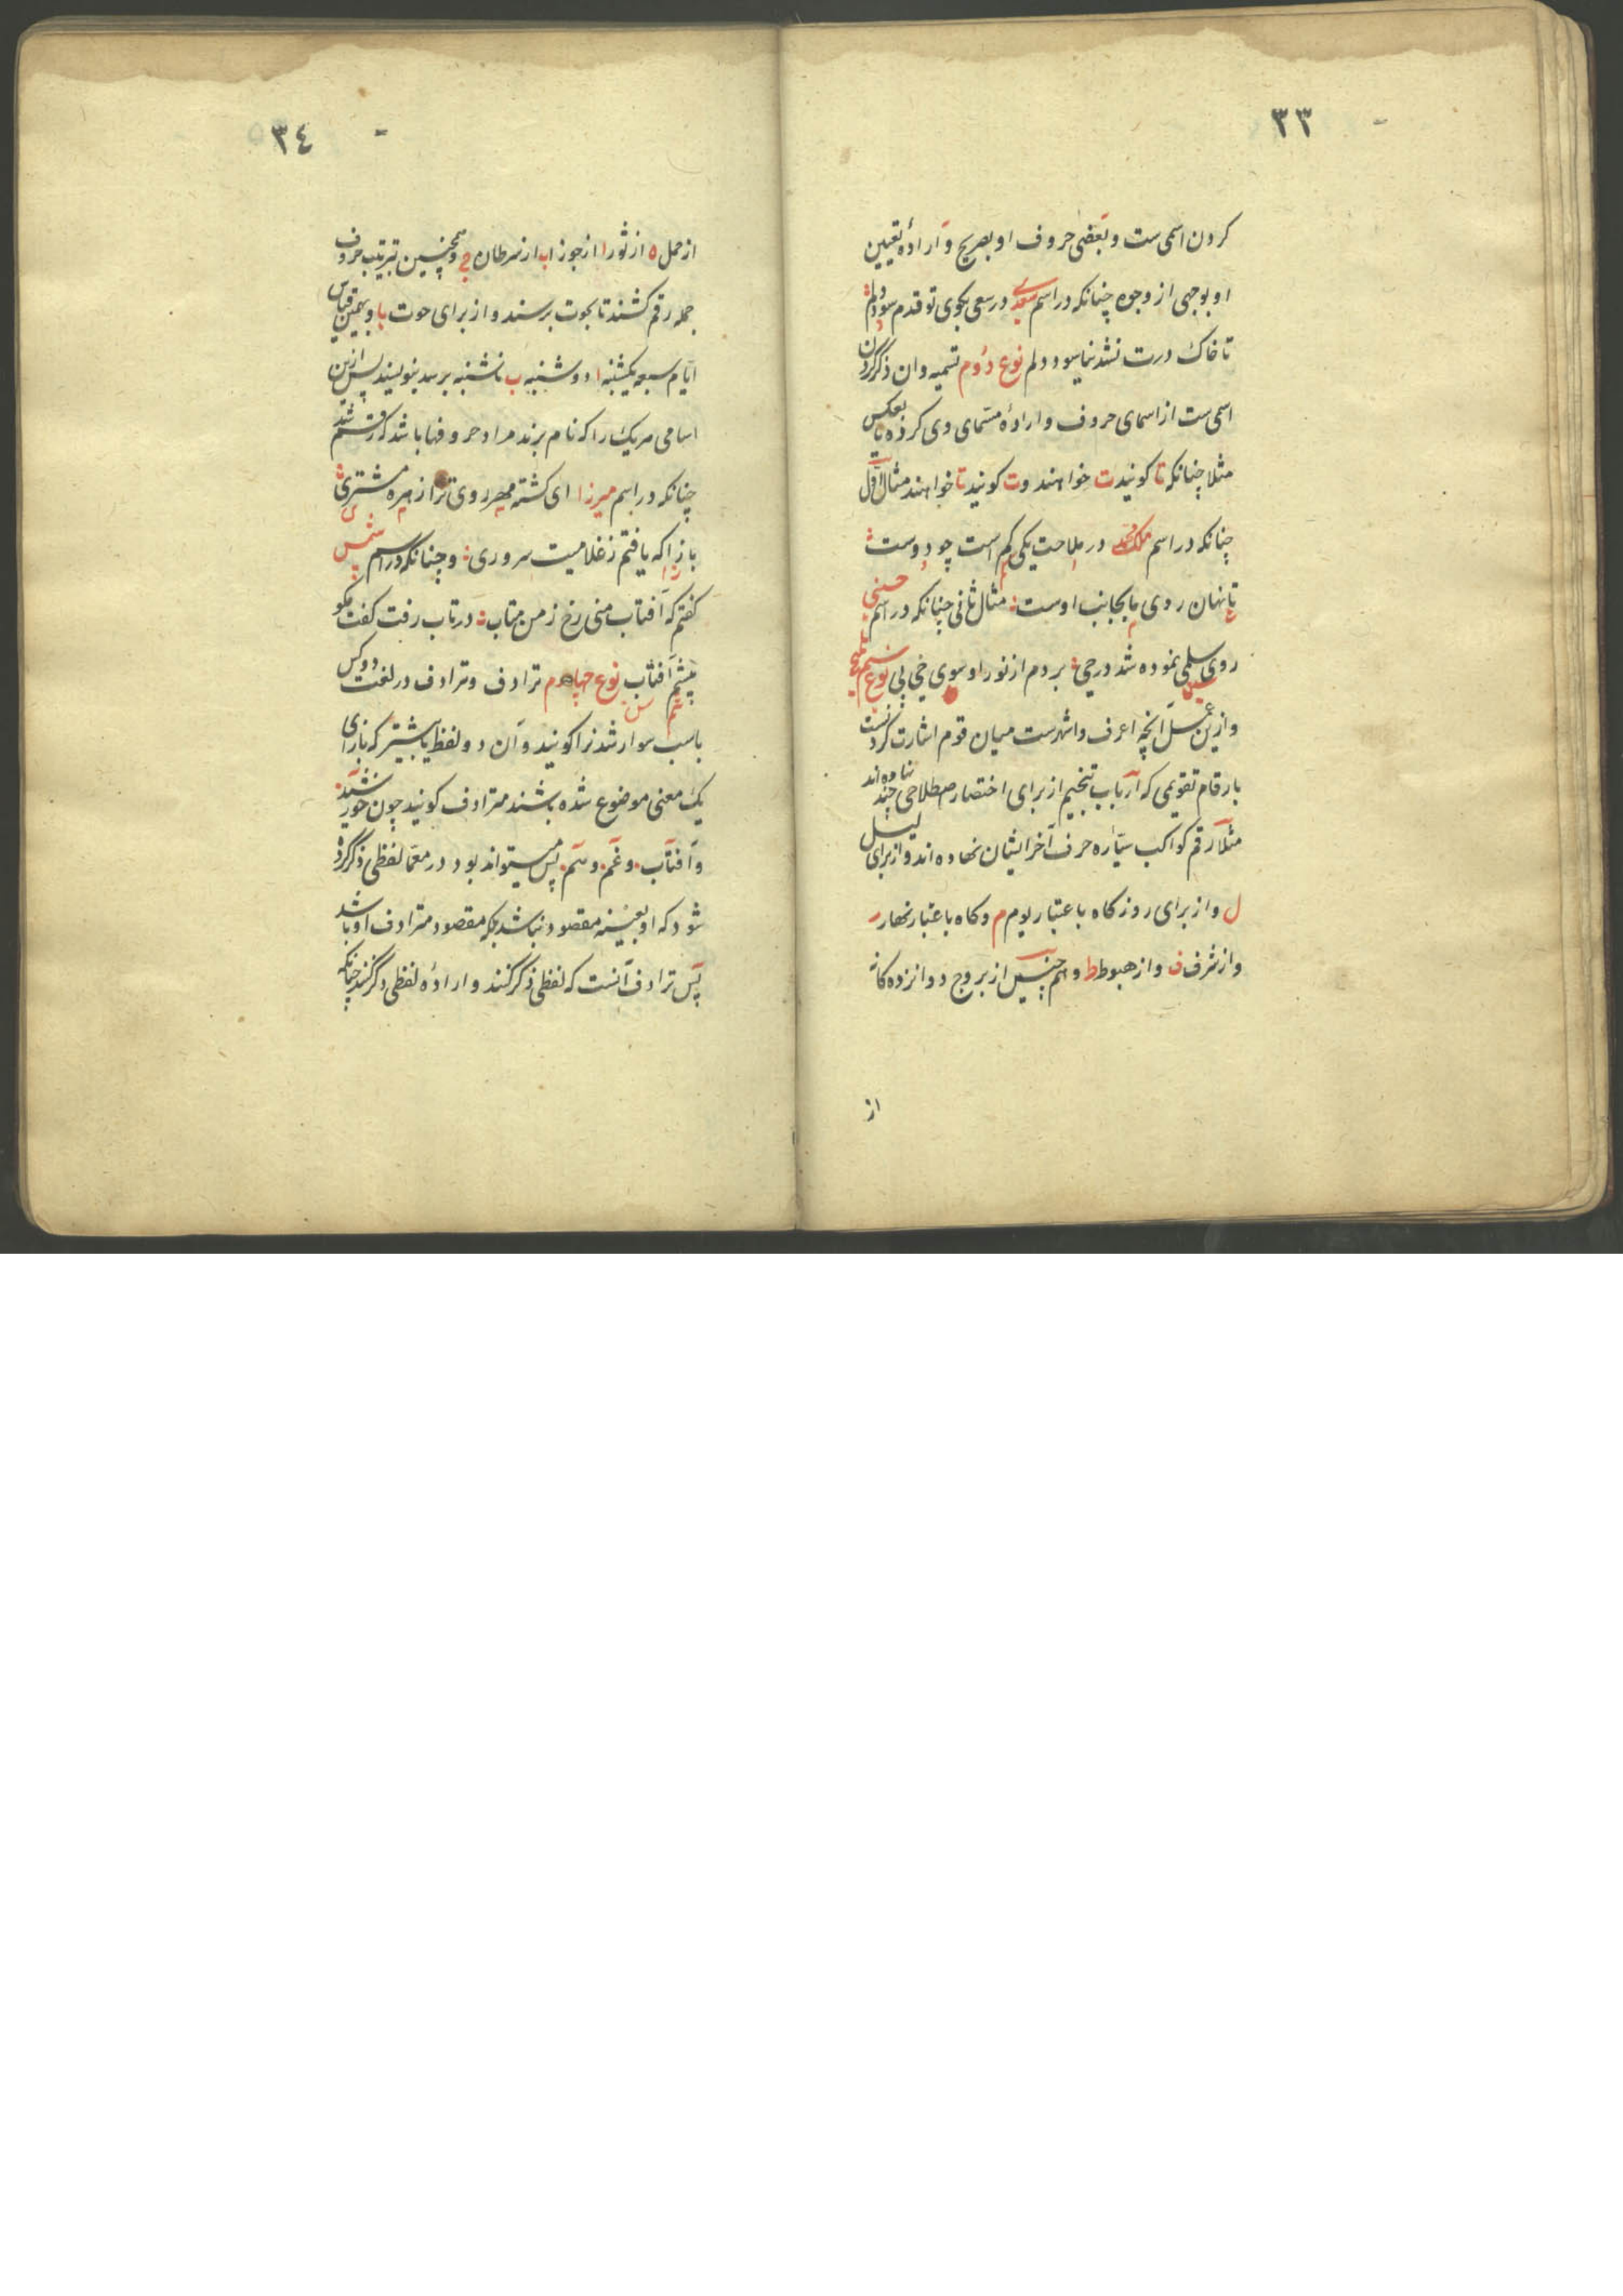 ٣٣
کردن اسمی‌ست و بعضی حروف او بصریح و ارادهٔ تعیین
او بوجهی از وجوه چنانکه در اسم سعدی در سعی بکوی تو قدم سود دلم
تا خاک درت نشد نیاسود دلم نوع دوم تسمیه و ان ذکر کردن
اسمی‌ست از اسمای حروف و ارادهٔ مسمای وی کرده یا بعکس
مثلا چنانکه تا کویند ت خواهند و ت کویند تا خواهند مثال اول
چنانکه در اسم در ملاحت یکی کم است چو دوست
تا نهان روی ما بجانب اوست مثال ثانی چنانکه در اسم حسنی
روی سلمی نموده شد در حی بردم از نور او سوی خی پی نوع سیم تلمیح
و ازین آنچه اعرف و اشهرست میان قوم اشارت کردنست
بارقام تقویمی که ارباب تنجیم از برای اختصار اصطلاحی چند نهاده‌اند
مثلا رقم کواکب سیاره حرف آخر ایشان نهاده‌اند و از برای لیل
ل و از برای روز کاه باعتبار یوم م و کاه باعتبار نهار ر
و از شرف ف و از هبوط ط و همچنین از بروج دوانزده کانه
از
٣٤
از حمل ه از ثور ا از جوزا ب از سرطان ج و همچنین بترتیب حروف
جمله رقم کشند تا بحوت برسند و از برای حوت یا و بهمین قیاس
ایام سبعه یکشنبه ا دوشنبه ب تا شنبه برسد بنویسند پس ازین
اسامی هریک را که نام برند مراد حروفها باشد که رقم شد
چنانکه در اسم میرزا ای کشته مهر روی ترا زهره مشتری
باز آ که یافتم ز غلامیت سروری و چنانکه در اسم شمس
کفتم که آفتاب منی رخ ز من متاب در تاب رفت کفت مکو
پیشم آفتاب نوع چهارم ترادف و ترادف در لغت دو کس
باسب سوار شدنرا کویند و آن دو لفظ یا بیشتر که بازای
یک معنی موضوع شده باشند مترادف کویند چون خورشید
و آفتاب و غم و هم پس میتواند بود در معما لفظی ذکر کرده
شود که او بعینه مقصود نباشد بلکه مقصود مترادف او باشد
پس ترادف آنست که لفظی ذکر کنند و ارادهٔ لفظی دکر کنند چنانکه